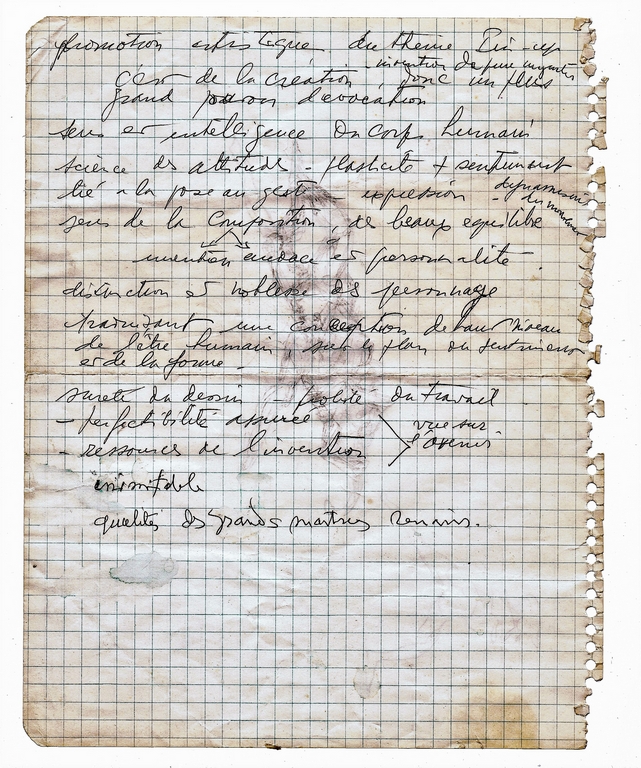 promotion artistique du thème Pin-up
invention de pure imagination
C'est de la création donc un plus
grand pouvoir d'évocation
sens et intelligence du corps humain
science des attitudes - plasticité + sentiment
lié à la pose au geste expression - dynamisme
du mouvement
sens de la composition, de beaux equilibre
invention audace et personnalité
distinction et noblesse des personnage
traduisant une conception de haut niveau
de l'être humain, sur le plan du sentiment
et de la forme -
sureté du dessin - probité du travail
- perfectibilité assurée vue sur
l'avenir
- ressources de l'invention
inimitable
qualités des grands maitres réunies.